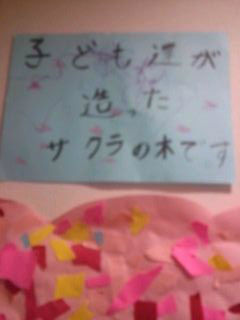 子ども達が
造った
サクラの木です